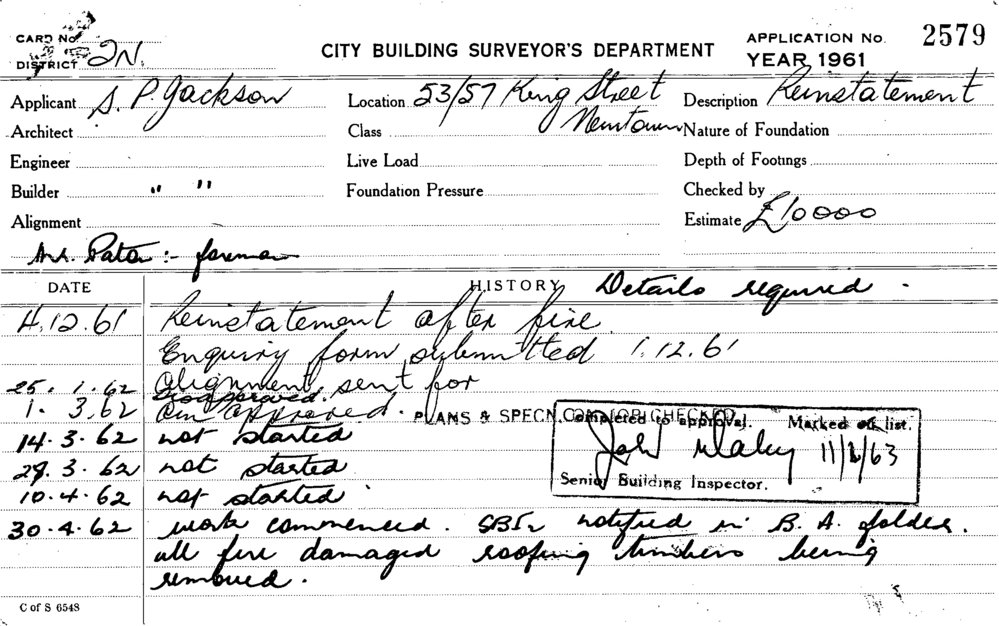 CARD No.
DISTRICT 2N.
CITY BUILDING SURVEYOR'S DEPARTMENT
APPLICATION No. 2579
YEAR 1961
Applicant S. P. Jackson
Location 53/57 King Street
Newtown
Description Reinstatement
Architect
Class
Nature of Foundation
Engineer
Live Load
Depth of Footings
Builder " "
Foundation Pressure
Checked by
Alignment
Estimate £10000
:- foreman
DATE
HISTORY
Details required.
4.12.61 Reinstatement after fire
Enquiry form submitted 1.12.61
25.1.62 Alignment sent for
Disapproved.
1.3.62 approved. PLANS & SPECN. CHECKED
14.3.62 not started
29.3.62 not started
10.4.62 not started
Completed to approval. Marked off list.
11/2/63
Senior Building Inspector.
30.4.62 work commenced. notified in B. A. folder.
all fire damaged roofing timbers being
removed.
C of S 6548